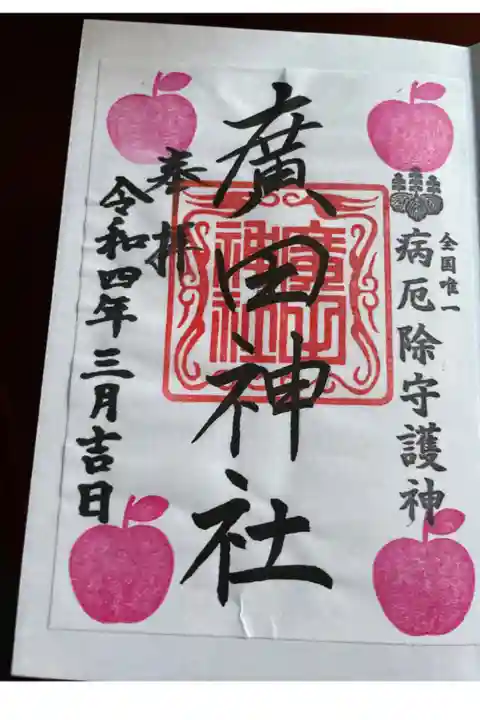 全国唯一
病厄除守護神
奉拝
廣田神社
廣田
神社
令和四年三月吉日